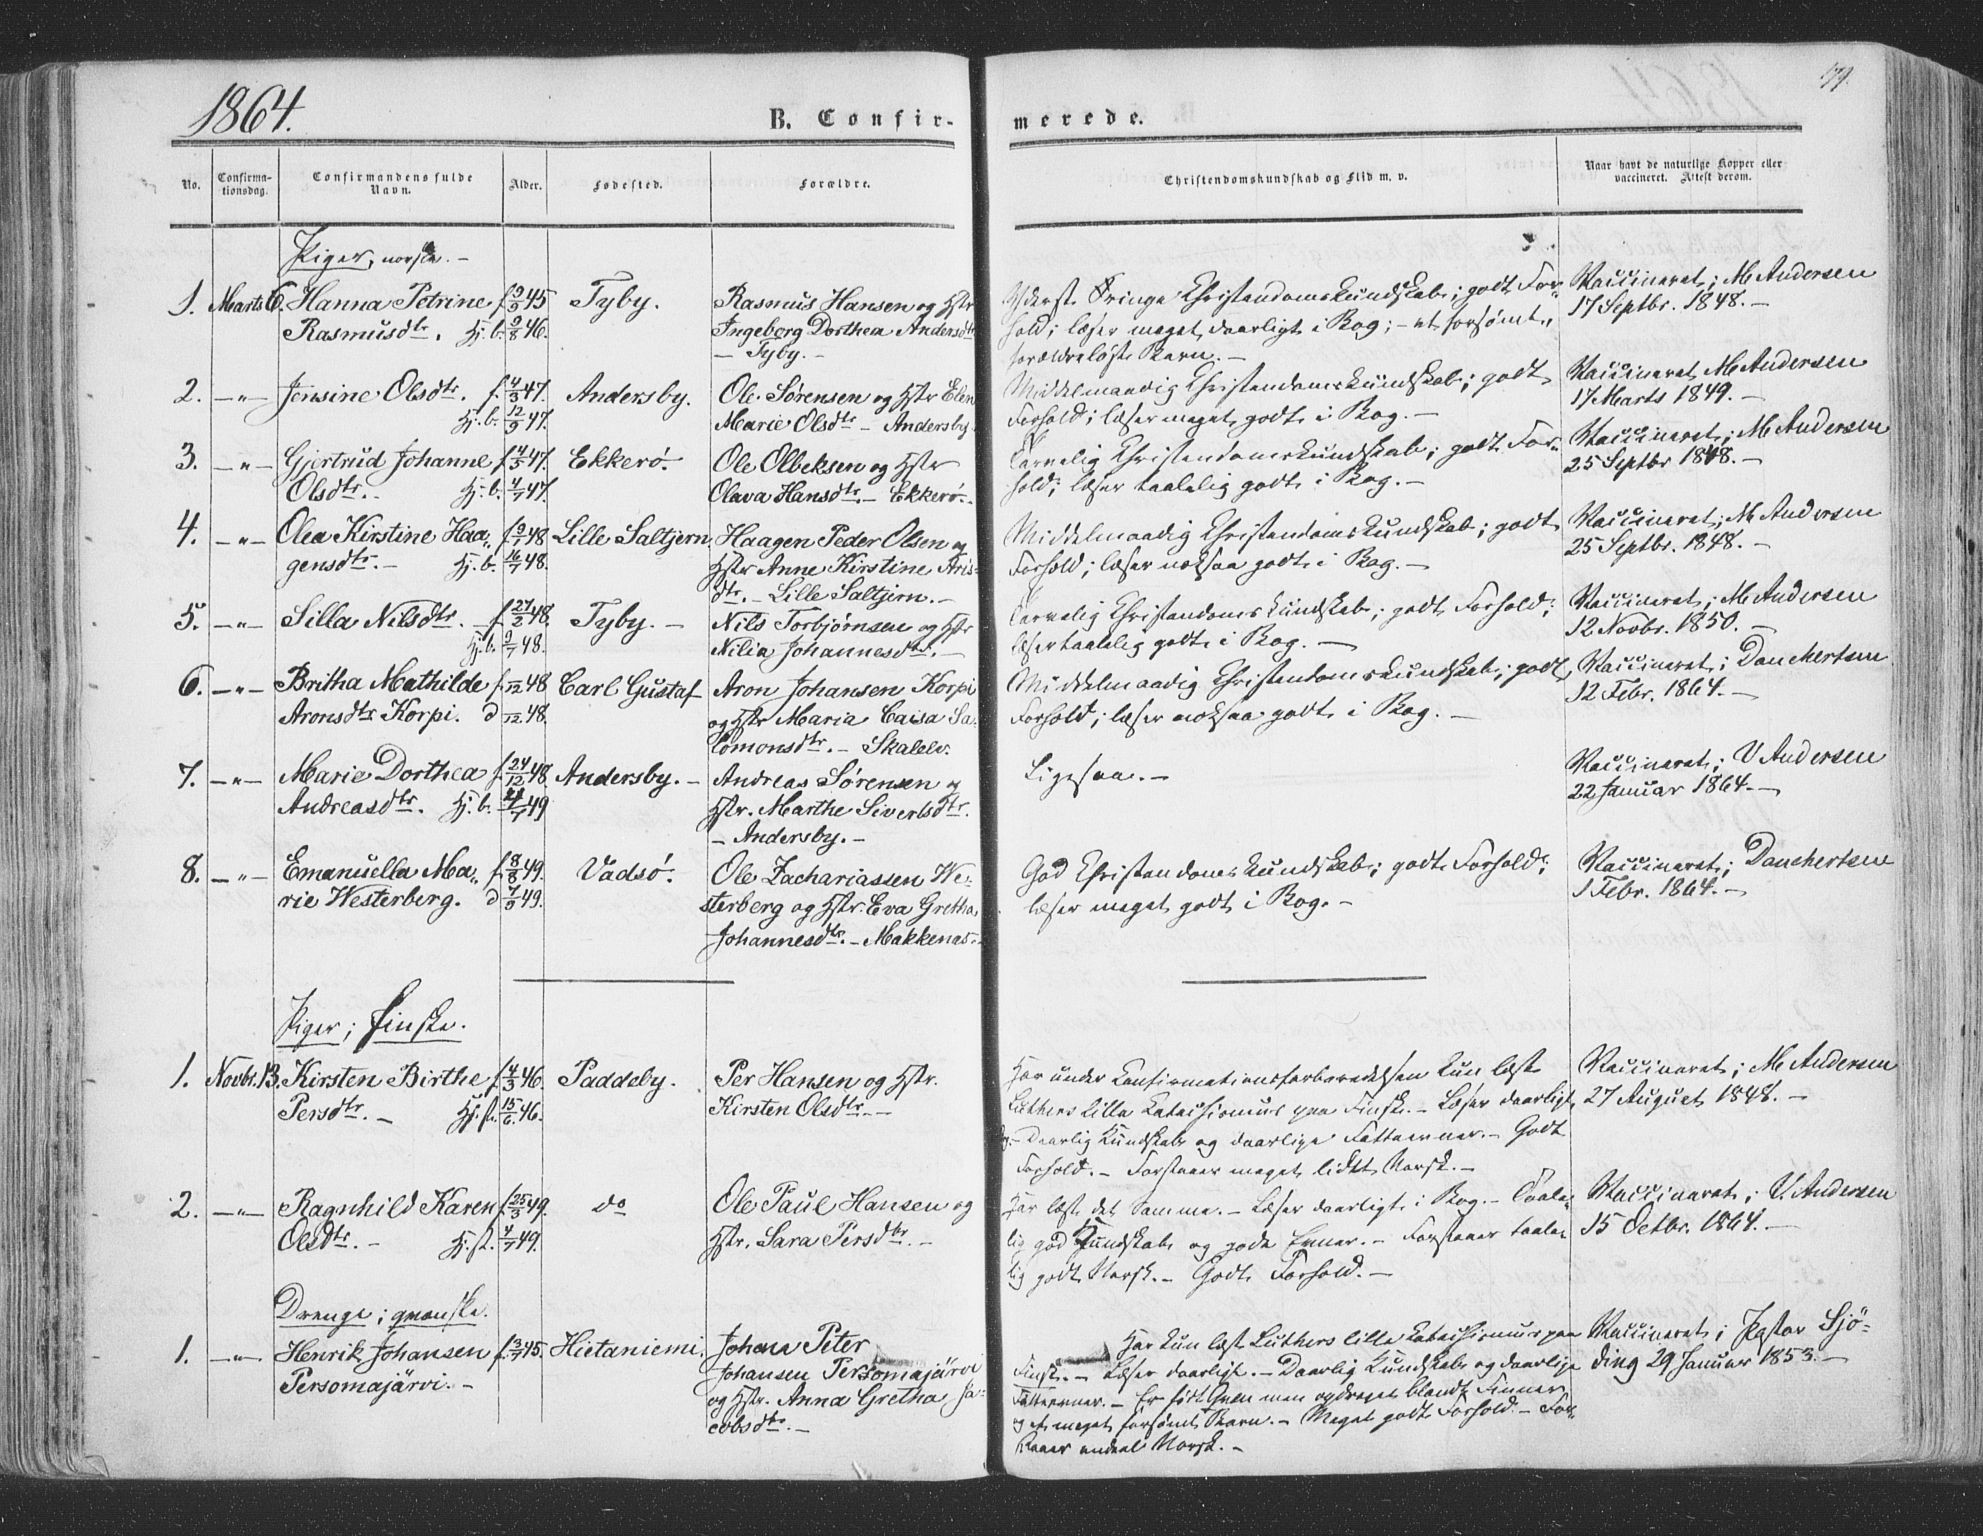 1864.
B. Confir-
merede.
179.
No.
Confirma-
tionsdag.
Confirmandens fulde
Navn.
Alder.
Fødested.
Forældre.
Christendomskundskab og Flid m. v.
Naar havt de naturlige Kopper eller
vaccineret. Attest derom.
Piger, norske. -
1. Marts 6. Hanna Petrine f. 9/9 45 Tyby. Rasmus Hansen og Hstr
Rasmusdtr. Hj. b. 9/8 46. Ingeborg Dorthea Andersdtr
- Tyby. -
Yderst Christendomskundskab; godt For-
hold; læser meget daarligt i Bog; - et forsømt,
forældreløst Barn. -
Vaccineret; M Andersen
17 Septbr. 1848. -
2. -"- Jensine Olsdtr. f. 4/3 47. Andersby. Ole Sørensen og Hstr Elen
Hj. b. 12/9 47. Marie Olsdtr - Andersby.
Middelmaadig Christendomskundskab; godt
Forhold; læser meget godt i Bog. -
Vaccineret, M Andersen
17 Marts 1849. -
3. -"- Gjertrud Johanne f. 4/5 47. Ekkerø. Ole Olbeksen og Hstr
Olsdtr. - Hj. b. 4/7 47. Olava Hansdtr. - Ekkerø. -
Tarvelig Christendomskundskab; godt For-
hold; læser taalelig godt i Bog. -
Vaccineret; M Andersen
25 Septbr 1848. -
4. -"- Olea Kirstine Haa- f. 9/1 48 Lille Saltjern. Haagen Peder Olsen og
gensdtr. - Hj. b. 16/7 48. Hstr Anne Kirstine Aris-
dtr. - Lille Saltjern. -
Middelmaadig Christendomskundskab; godt
Forhold; læser noksaa godt i Bog. -
Vaccineret; M Andersen
25 Septbr. 1848. -
5. -"- Silla Nilsdtr. - f. 27/2 48. Tyby. - Nils Torbjørnsen og Hstr
Hj. b. 9/7 48. Nilia Johannesdtr. -
Tarvelig Christendomskundskab; godt Forhold;
læser taalelig godt i Bog. -
Vaccineret; M Andersen
12 Novbr. 1850. -
6. -"- Britha Mathilde f. /12 48 Carl Gustaf Aron Johansen Korpi
Aronsdtr Korpi. d /12 48. og Hstr Maria Caisa Sa-
lomonsdtr. - Skalelv.
Middelmaadig Christendomskundskab; godt
Forhold; læser noksaa godt i Bog. -
Vaccineret; Danchertsen
12 Febr. 1864. -
7. -"- Marie Dorthea f. 24/12 48 Andersby. - Andreas Sørensen og
Andreasdtr. Hj. b. /7 49 Hstr. Marthe Sivertsdtr.
- Andersby. -
Ligesaa. -
Vaccineret; V Andersen
22 Januar 1864. -
8. -"- Emanuella Ma- f. 8/8 49. Vadsø. Ole Zachariassen We-
rie Westerberg. d 7/9 49. sterberg og Hstr. Eva Gretha
Johannesdtr. - Makkenæs. -
God Christendomskundskab; godt Forhold;
læser meget godt i Bog. -
Vaccineret; Danchertsen
1 Febr. 1864. -
Piger; finske.
1. Novbr. 13. Kirsten Birthe f. 4/3 46. Paddeby. Per Hansen og Hstr.
Persdtr. - Hj. st. 15/6 46. Kirsten Olsdtr. -
Har under Confirmationsforberedelsen kun læst
Luthers lille Katechismus paa Finsk. - Læser daarligt
Bog. - Daarlig Kundskab og daarlige Fatteevner. - Godt
Forhold. - Forstaaer meget lidet Norsk. -
Vaccineret; M. Andersen
27 August 1848. -
2. -"- Ragnhild Karen f. 25/3 49. do Ole Paul Hansen og
Olsdtr. - Hj. st. 4/7 49. Hstr. Sara Persdtr. -
Har læst det Samme. - Læser daarligt i Bog. - Taale-
lig god Kundskab og gode Evner. - Forstaaer taale-
lig godt Norsk. - Godt Forhold. -
Vaccineret; V. Andersen
15 Octbr. 1864. -
Drenge; qvænske.
1. -"- Henrik Johansen f. 3/7 45. Hietaniemi. Johans Peter
Persomajärvi. - Johansen Persomajärvi
og Hstr. Anna Gretha Ja-
cobsdtr. -
Har kun læst Luthers lille Katechismus paa
Finsk. - Læser daarligt. - Daarlig Kundskab og daarlige
Fatteevner. - Er født Qven men opdraget blandt Finner
og et meget forsømt Barn. - Meget godt Forhold. - For-
staaer endeel Norsk. -
Vaccineret; Pastor Sjö-
ding 29 Januar 1853. -